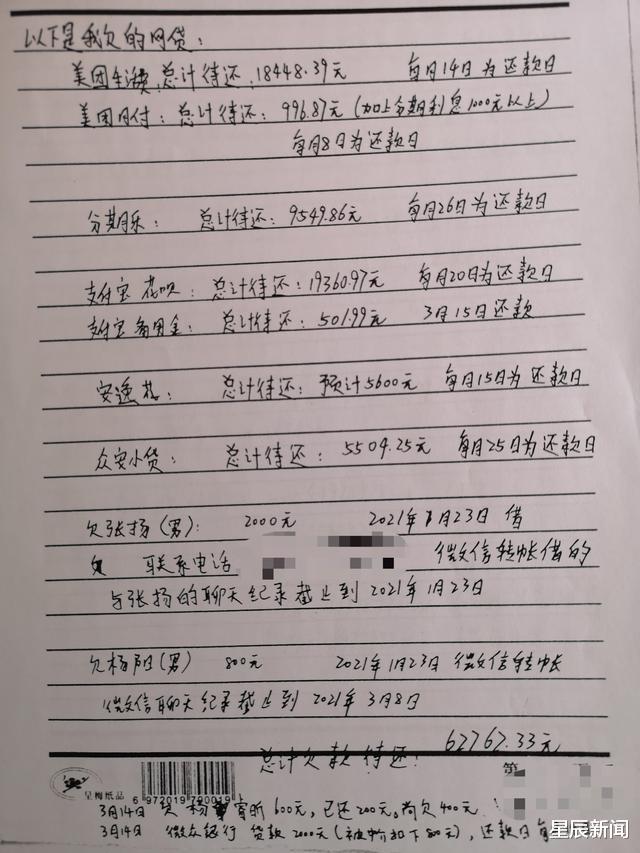 以下是我欠的网贷：
美团生活费：总计待还：18448.39元 每月14日为还款日
美团月付：总计待还：996.87元（加上分期利息1000元以上）
每月8日为还款日
分期乐：总计待还：9549.86元 每月26日为还款日
支付宝花呗：总计待还：19360.97元 每月20日为还款日
支付宝备用金：总计待还：501.99元 3月15日还款
安逸花：总计待还：预计5600元 每月15日为还款日
众安小贷：总计待还：5504.25元 每月25日为还款日
欠张扬（男）：2000元 2021年1月23日借
联系电话 微信转帐借的
与张扬的聊天纪录截止到2021年1月23日
欠杨阳（男） 800元 2021年1月23日 微信转帐
微信聊天纪录截止到2021年3月8日
总计欠款待还：62762.33元
第
星梅纸品
6 972019790019
3月14日 欠杨 600元，已还200元，尚欠400元
3月14日 微众银行 贷款2000元（被 扣下800元），还款日每
星辰新闻